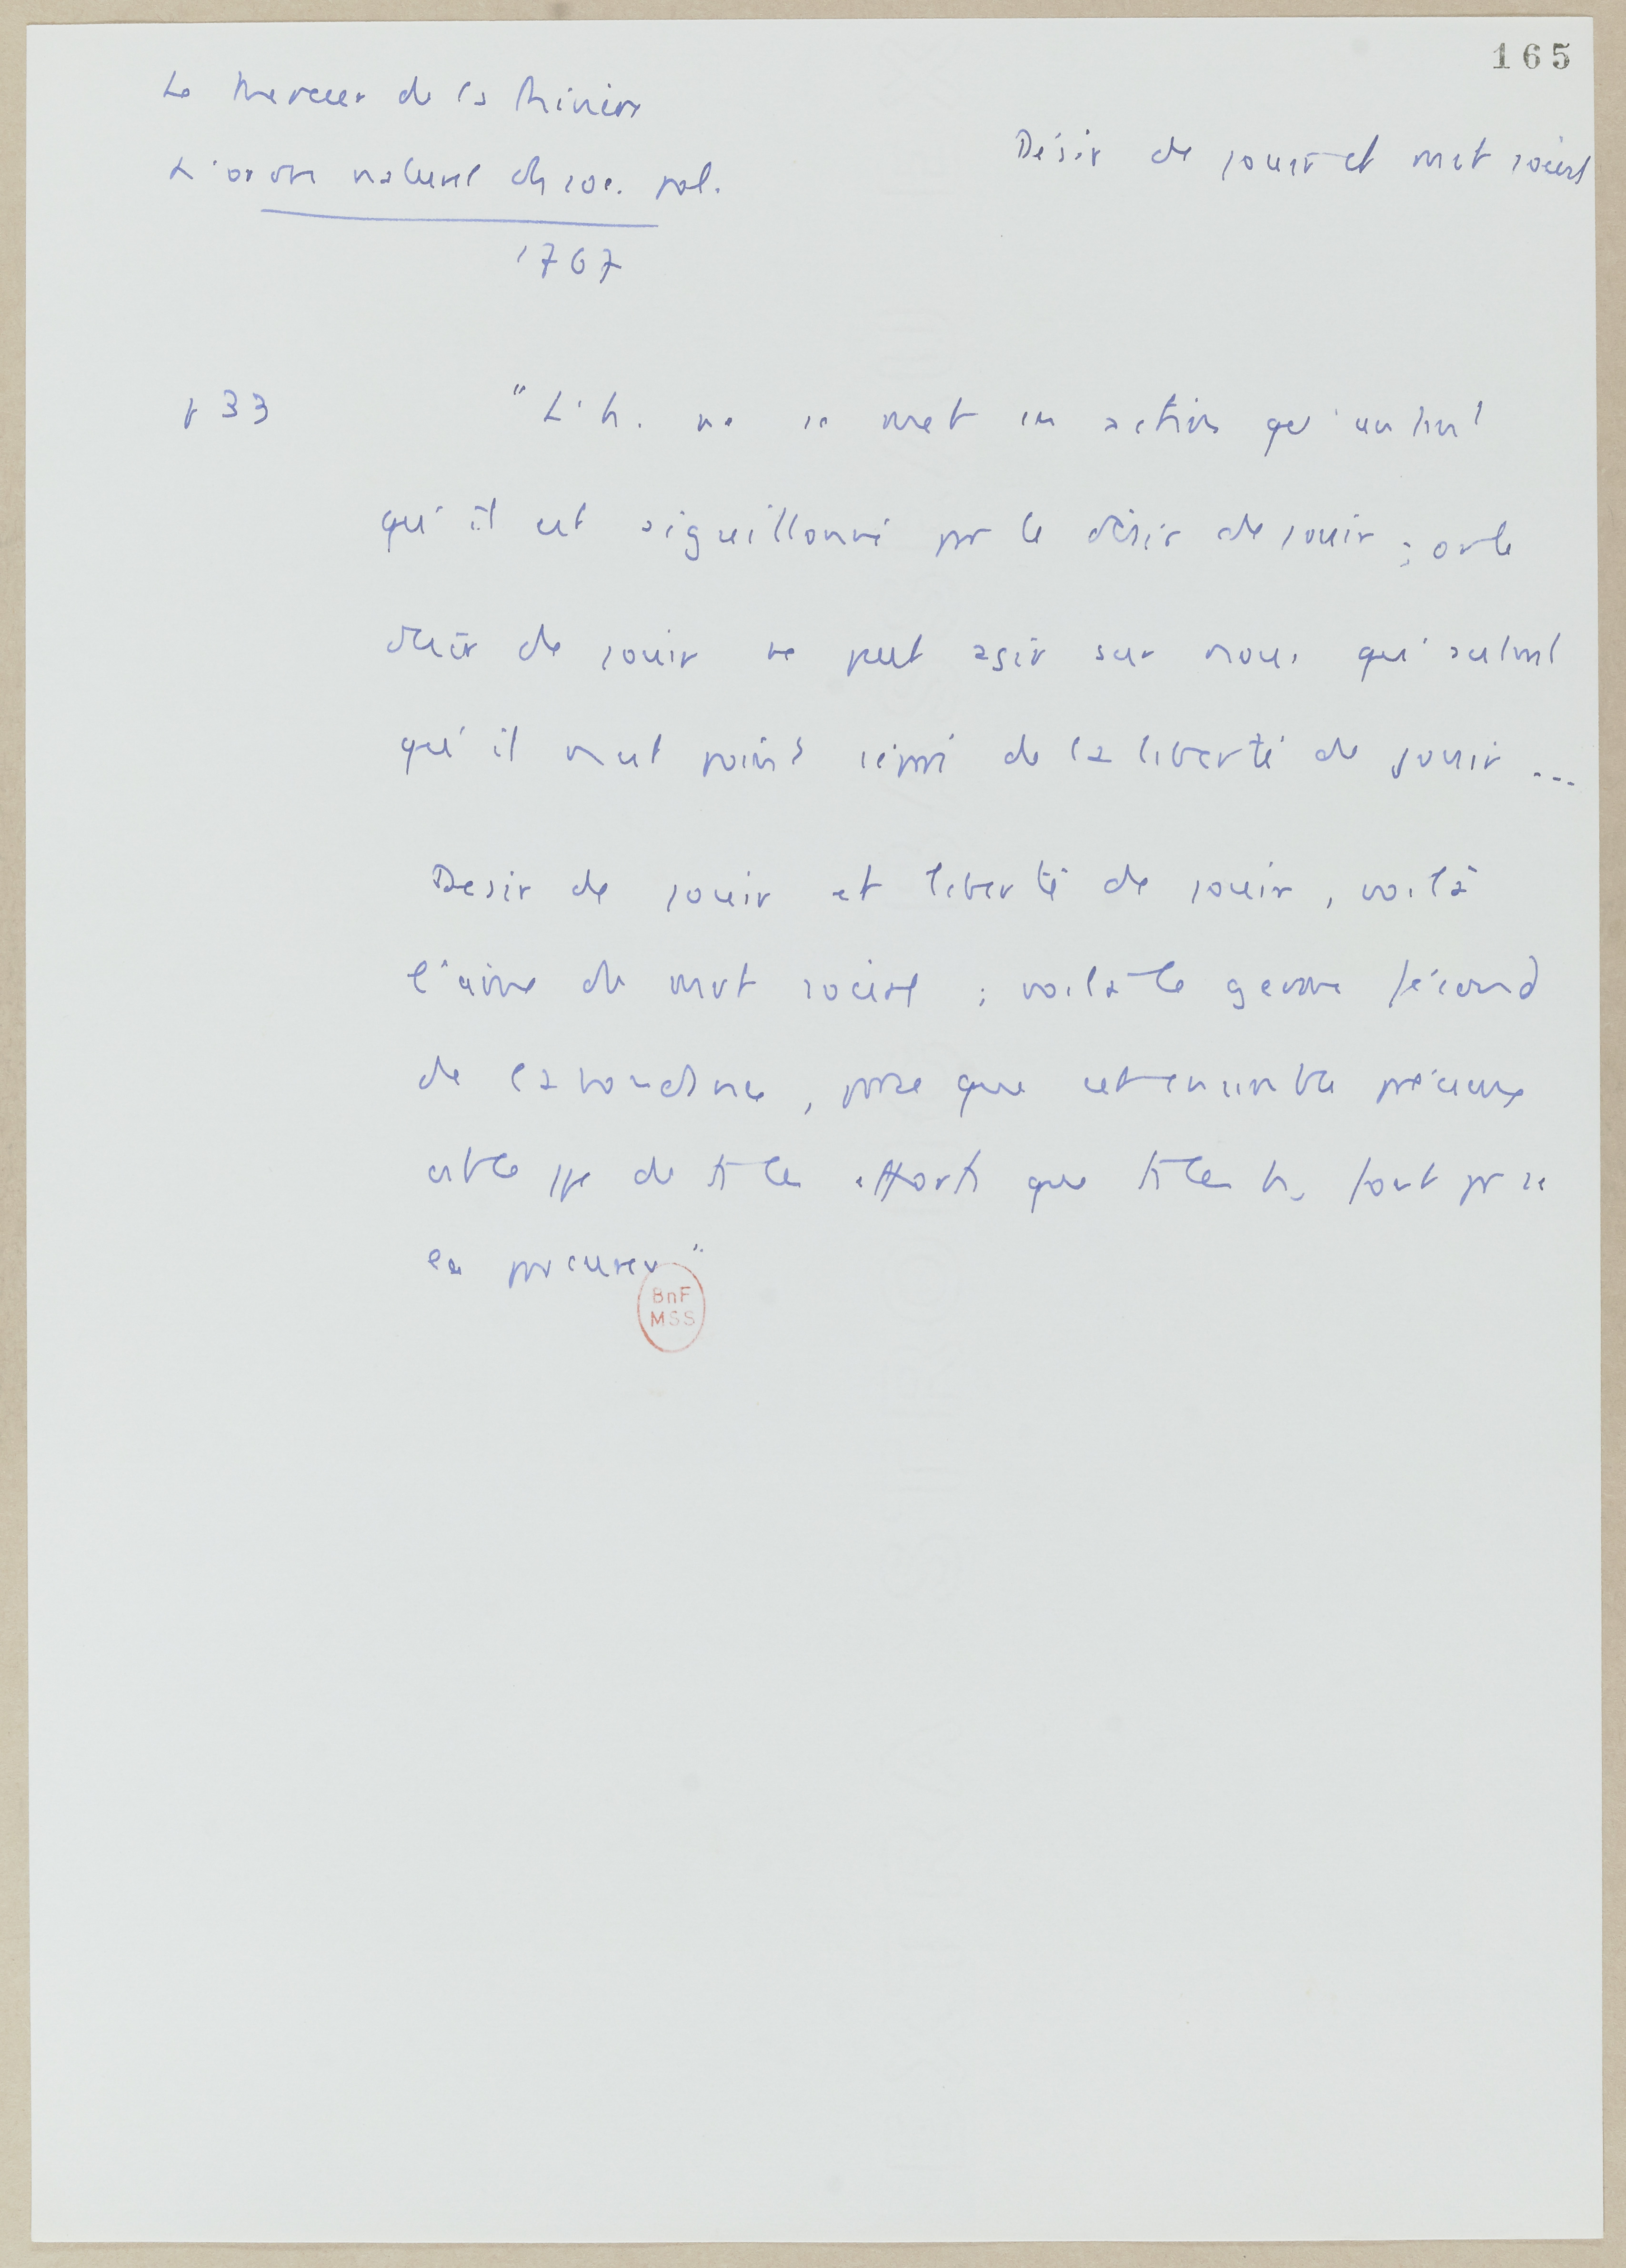 165
Le Mercier de la Rivière
Désir de jouir et mvt social
L'ordre naturel des soc. pol.
1767
p 33
"L'h. ne se met en action qu'autant
qu'il est aiguillonné pr le désir de jouir ; or le
désir de jouir ne peut agir sur nous qu'autant
qu'il n'est point séparé de la liberté de jouir ...
Desir de jouir et liberté de jouir, voilà
l'âme du mvt social ; voilà le germe fécond
de l'abondance, parce que cet ensemble précieux
est le ppe de ts les efforts que ts les h. font pr se
la procurer"
BnF
MSS